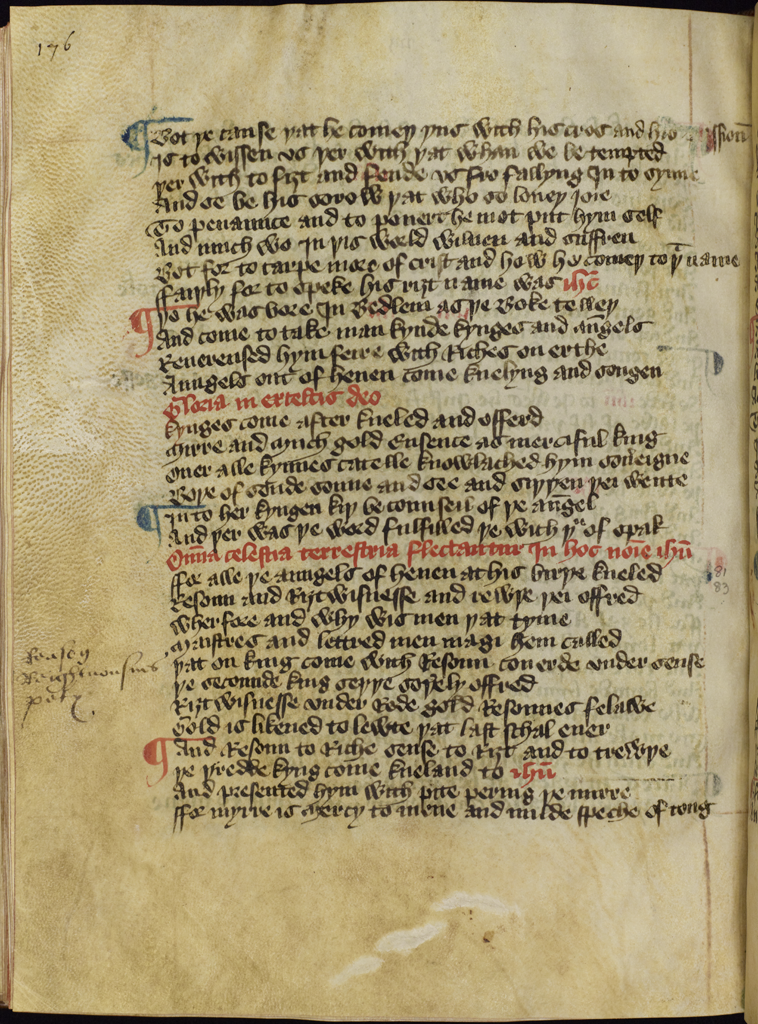 176
Bot þe cause þat he comeþ þus with his cros and his passioun
Is to wissen vs þer with þat whan we be tempted
Þer with to fiȝt and fende vs fro fallyng In to synne
And se be his sorow þat who so loueþ joie
To penaunce and to pouert he mot putt hym self
And mych wo In þis world wilnen and suffren
Bot for to carpe more of crist and how he comeþ to þt name
ffaiþly for to speke his riȝt name was ihc
Þo he was bore In Bedlem as þe Boke telleþ
And come to take mankynde kynges and angels
Reuerensed hym feire with Riches on erthe
Aungels out of heuen come knelyng and songen
Gloria in excelsis deo
kynges come after kneled and offerd
Mirre and mych gold Ensence as merciful king
Ouer alle kynnes catelle knowlached hym soueigne
Boþe of sonde sonne and see and siþþen þei wente
In to her kyngen kiþ be counseil of þe angel
And þer was þe word fulfilled þe with þu of spak
Omnia celestia terrestria flectantur In hoc noie ihu
ffor alle þe aungels of heuen at his birþe kneled
Resoun and Riȝtwisnesse and rewþe þei offred
Wherfore and why wismen þat tyme
Maistres and lettred men magi hem called
Þat on king come with Resoun couerde vnder sense
Þe secounde king seþþe soþely offred
Riȝtwisnesse vnder Rede gold Resounes felawe
Gold is likened to lewte þat last schal euer
And Resoun to Riche sense to Riȝt and to trewþe
Þe þredde kyng come kneland to ihu
And presented hym with pite pering þe mirre
ffor myrre is Mercy to mene and milde speche of tong
Reason
Reightuousnes
pety.
81
83